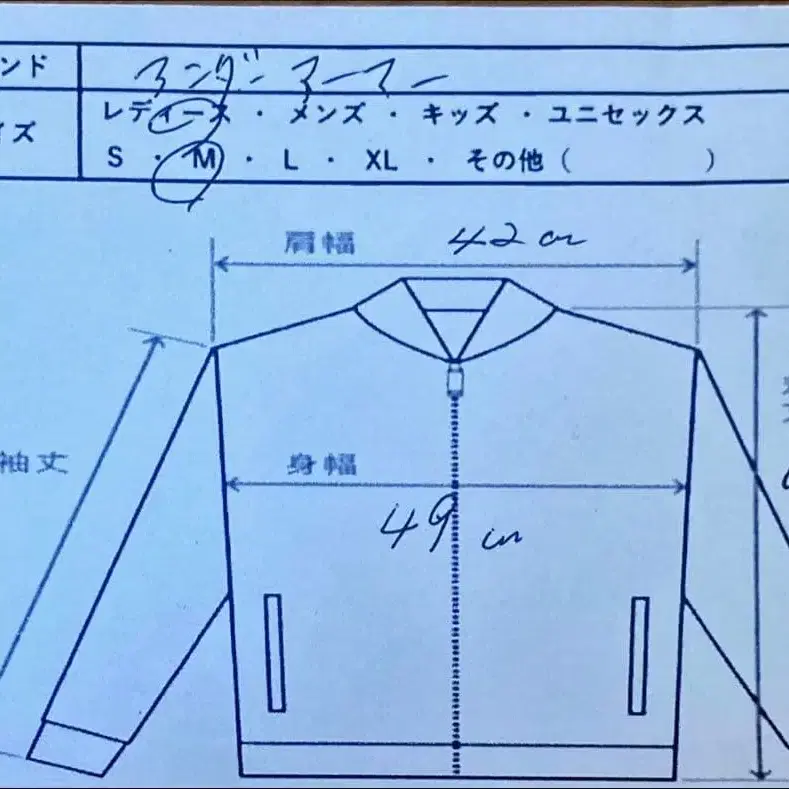 ンド アンダーアーマー
イズ レディース ・ メンズ ・ キッズ ・ ユニセックス
S ・ M ・ L ・ XL ・ その他 ( )
肩幅 42cm
袖丈
身幅
49 cm